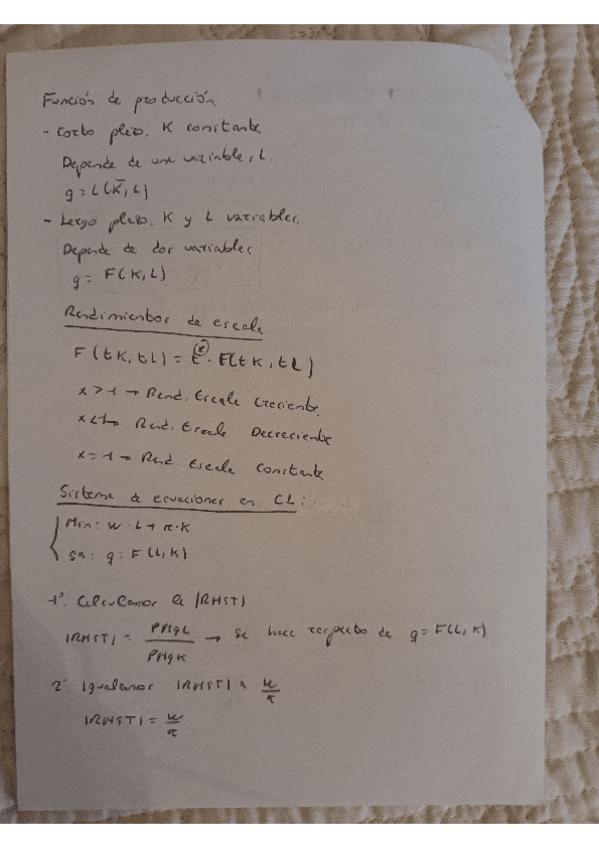 Función de producción
- Corto plazo. K constante
Depende de una variable, L.
q = L(K̄, L)
- Largo plazo. K y L variables.
Depende de dos variables
q = F(K, L)
Rendimientos de escala
F(tK, tL) = t^x · F(tK, tL)
x > 1 → Rend. Escala Creciente.
x < 1 → Rend. Escala Decreciente
x = 1 → Rend. Escala Constante
Sistema de ecuaciones en CL:
Min: w · L + r · K
sa: q = F(L, K)
1º. Calculamos la |RMST|
|RMST| = PMgL / PMgK → Se hace respecto de q = F(L, K)
2º Igualamos |RMST| a w/r
|RMST| = w/r